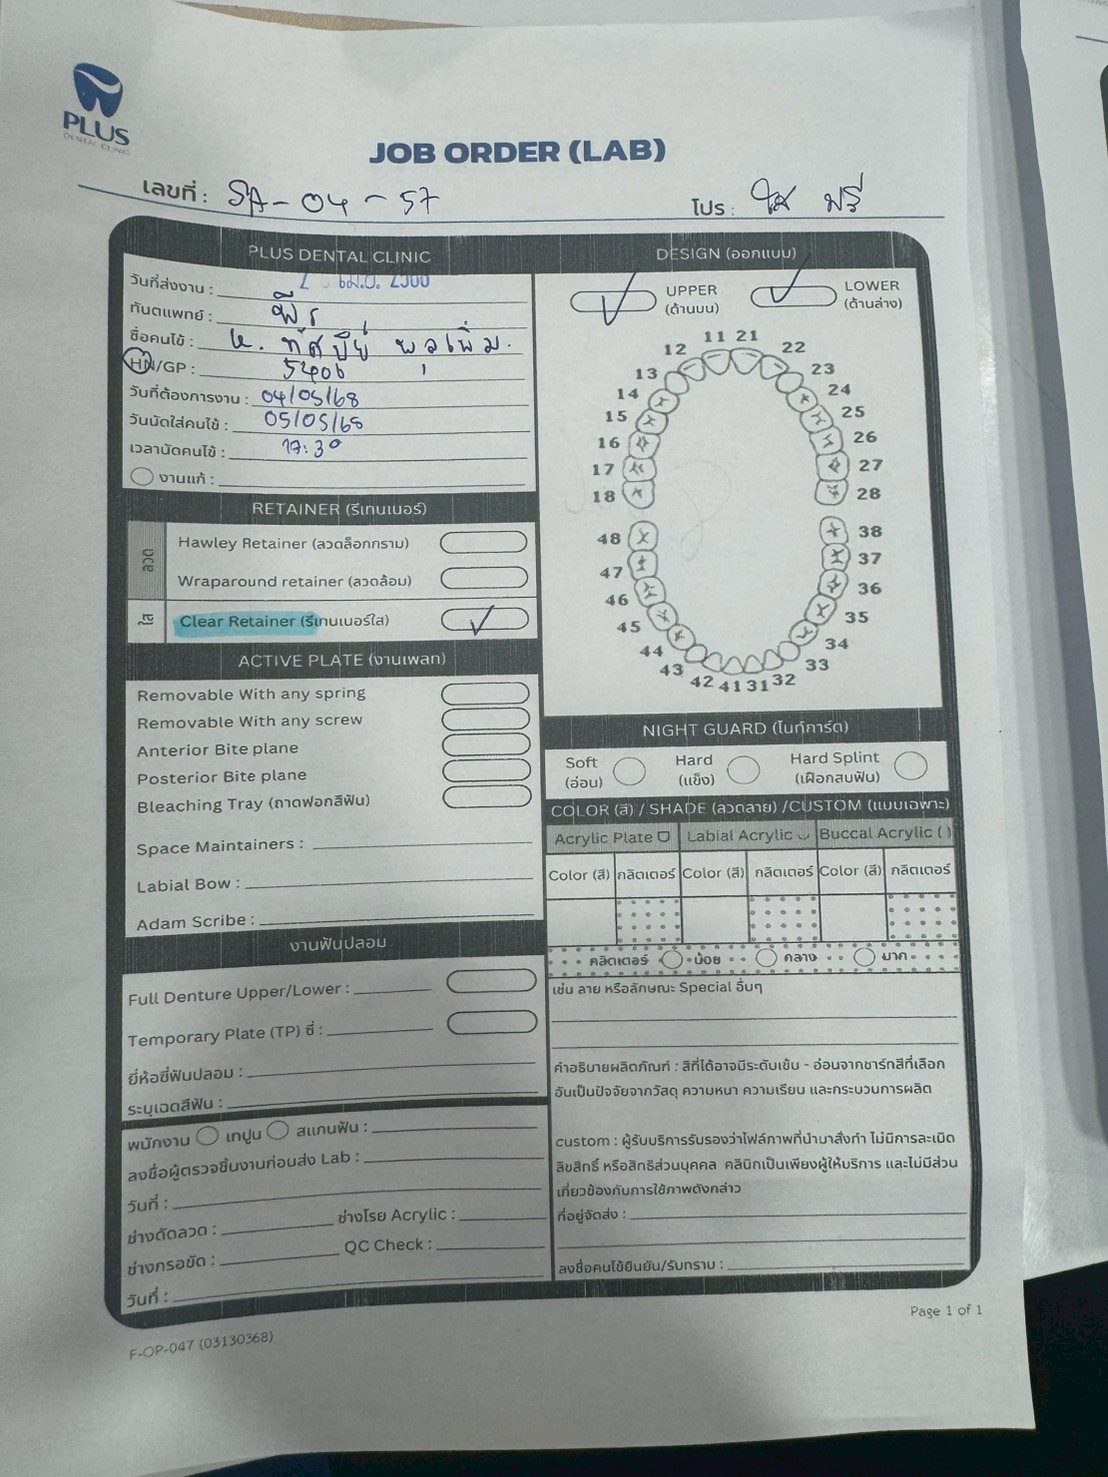 PLUS
DENTAL CLINIC
JOB ORDER (LAB)
เลขที่ : SA-04-57
โปร : ใส ฟรี
PLUS DENTAL CLINIC
วันที่ส่งงาน : เม.ย.
ทันตแพทย์ : พีร
ชื่อคนไข้ :
HN/GP :
วันที่ต้องการงาน : 04/05/68
วันนัดใส่คนไข้ : 05/05/68
เวลานัดคนไข้ : 17:30
งานแก้ :
RETAINER (รีเทนเนอร์)
ลวด
Hawley Retainer (ลวดล็อกกราม)
Wraparound retainer (ลวดล้อม)
ใส
Clear Retainer (รีเทนเนอร์ใส)
ACTIVE PLATE (งานเพลท)
Removable With any spring
Removable With any screw
Anterior Bite plane
Posterior Bite plane
Bleaching Tray (ถาดฟอกสีฟัน)
Space Maintainers :
Labial Bow :
Adam Scribe :
งานฟันปลอม
Full Denture Upper/Lower :
Temporary Plate (TP) ซี่ :
ยี่ห้อซี่ฟันปลอม :
ระบุเฉดสีฟัน :
พนักงาน เทปูน สแกนฟัน :
ลงชื่อผู้ตรวจชิ้นงานก่อนส่ง Lab :
วันที่ :
ช่างดัดลวด : ช่างโรย Acrylic :
ช่างกรอขัด : QC Check :
วันที่ :
DESIGN (ออกแบบ)
UPPER
(ด้านบน)
LOWER
(ด้านล่าง)
11 21
12 22
13 23
14 24
15 25
16 26
17 27
18 28
48 38
47 37
46 36
45 35
44 34
43 33
42 41 31 32
NIGHT GUARD (ไนท์การ์ด)
Soft
(อ่อน)
Hard
(แข็ง)
Hard Splint
(เฝือกสบฟัน)
COLOR (สี) / SHADE (ลวดลาย) /CUSTOM (แบบเฉพาะ)
Acrylic Plate Labial Acrylic Buccal Acrylic ( )
Color (สี) กลิตเตอร์ Color (สี) กลิตเตอร์ Color (สี) กลิตเตอร์
คลิตเตอร์ น้อย กลาง มาก
เช่น ลาย หรือลักษณะ Special อื่นๆ
คำอธิบายผลิตภัณฑ์ : สีที่ได้อาจมีระดับเข้ม - อ่อนจากชาร์ทสีที่เลือก
อันเป็นปัจจัยจากวัสดุ ความหนา ความเรียบ และกระบวนการผลิต
custom : ผู้รับบริการรับรองว่าไฟล์ภาพที่นำมาสั่งทำ ไม่มีการละเมิด
ลิขสิทธิ์ หรือสิทธิส่วนบุคคล คลินิกเป็นเพียงผู้ให้บริการ และไม่มีส่วน
เกี่ยวข้องกับการใช้ภาพดังกล่าว
ที่อยู่จัดส่ง :
ลงชื่อคนไข้ยืนยัน/รับทราบ :
Page 1 of 1
F-OP-047 (03130368)